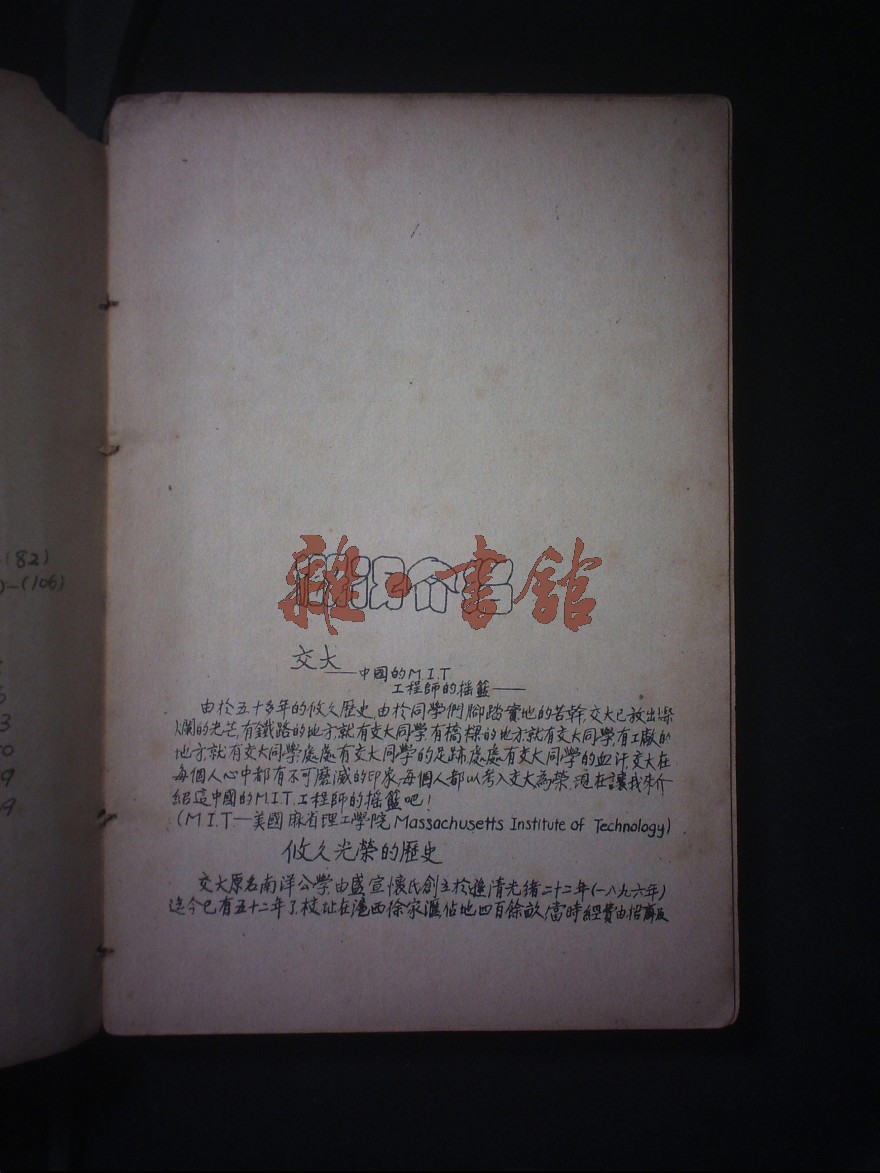 (82)
)-(106)
3
9
9
雜·書館
學校介紹
交大
——中國的M.I.T
工程師的搖籃——
由於五十多年的攸久歷史,由於同學們腳踏實地的苦幹,交大已放出燦
爛的光芒,有鐵路的地方,就有交大同學,有橋樑的地方,就有交大同學,有工廠的
地方,就有交大同學,處處有交大同學的足跡,處處有交大同學的血汗,交大在
每個人心中都有不可磨滅的印象,每個人都以考入交大為榮,現在讓我來介
紹這中國的M.I.T.工程師的搖籃吧!
(M.I.T—美國麻省理工學院 Massachusetts Institute of Technology)
攸久光榮的歷史
交大原名南洋公學由盛宣懷氏創立於遜清光緒二十二年(一八九六年)
迄今已有五十二年了,校址在滬西徐家滙佔地四百餘畝,當時經費由招商及